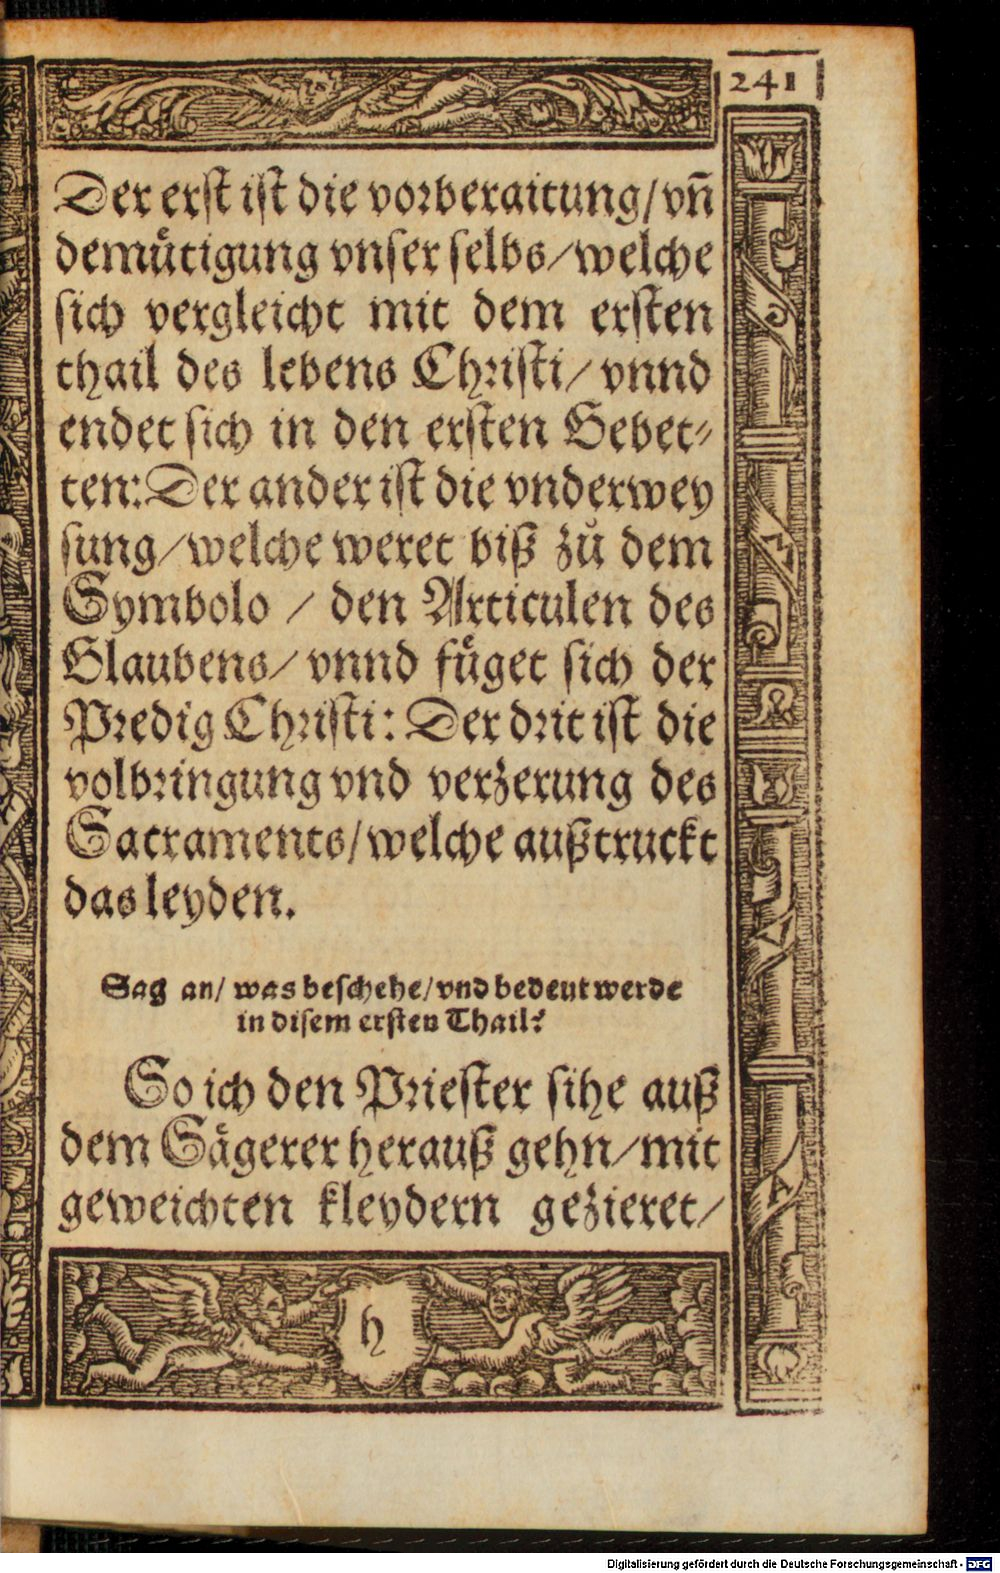 241
Der erst ist die vorberaitung/ vn̄
demuͤtigung vnser selbs/ welche
sich vergleicht mit dem ersten
thail des lebens Christi/ vnnd
endet sich in den ersten Gebet⸗
ten: Der ander ist die vnderwey
sung/ welche weret biß zuͦ dem
Symbolo / den Articulen des
Glaubens/ vnnd fuͤget sich der
Predig Christi: Der drit ist die
volbringung vnd verzerung des
Sacraments/ welche außtruckt
das leyden.
Sag an/ was beschehe/ vnd bedeut werde
in disem ersten Thail?
So ich den Priester sihe auß
dem Saͤgerer herauß gehn/ mit
geweichten kleydern gezieret/
h
Digitalisierung gefördert durch die Deutsche Forschungsgemeinschaft - DFG